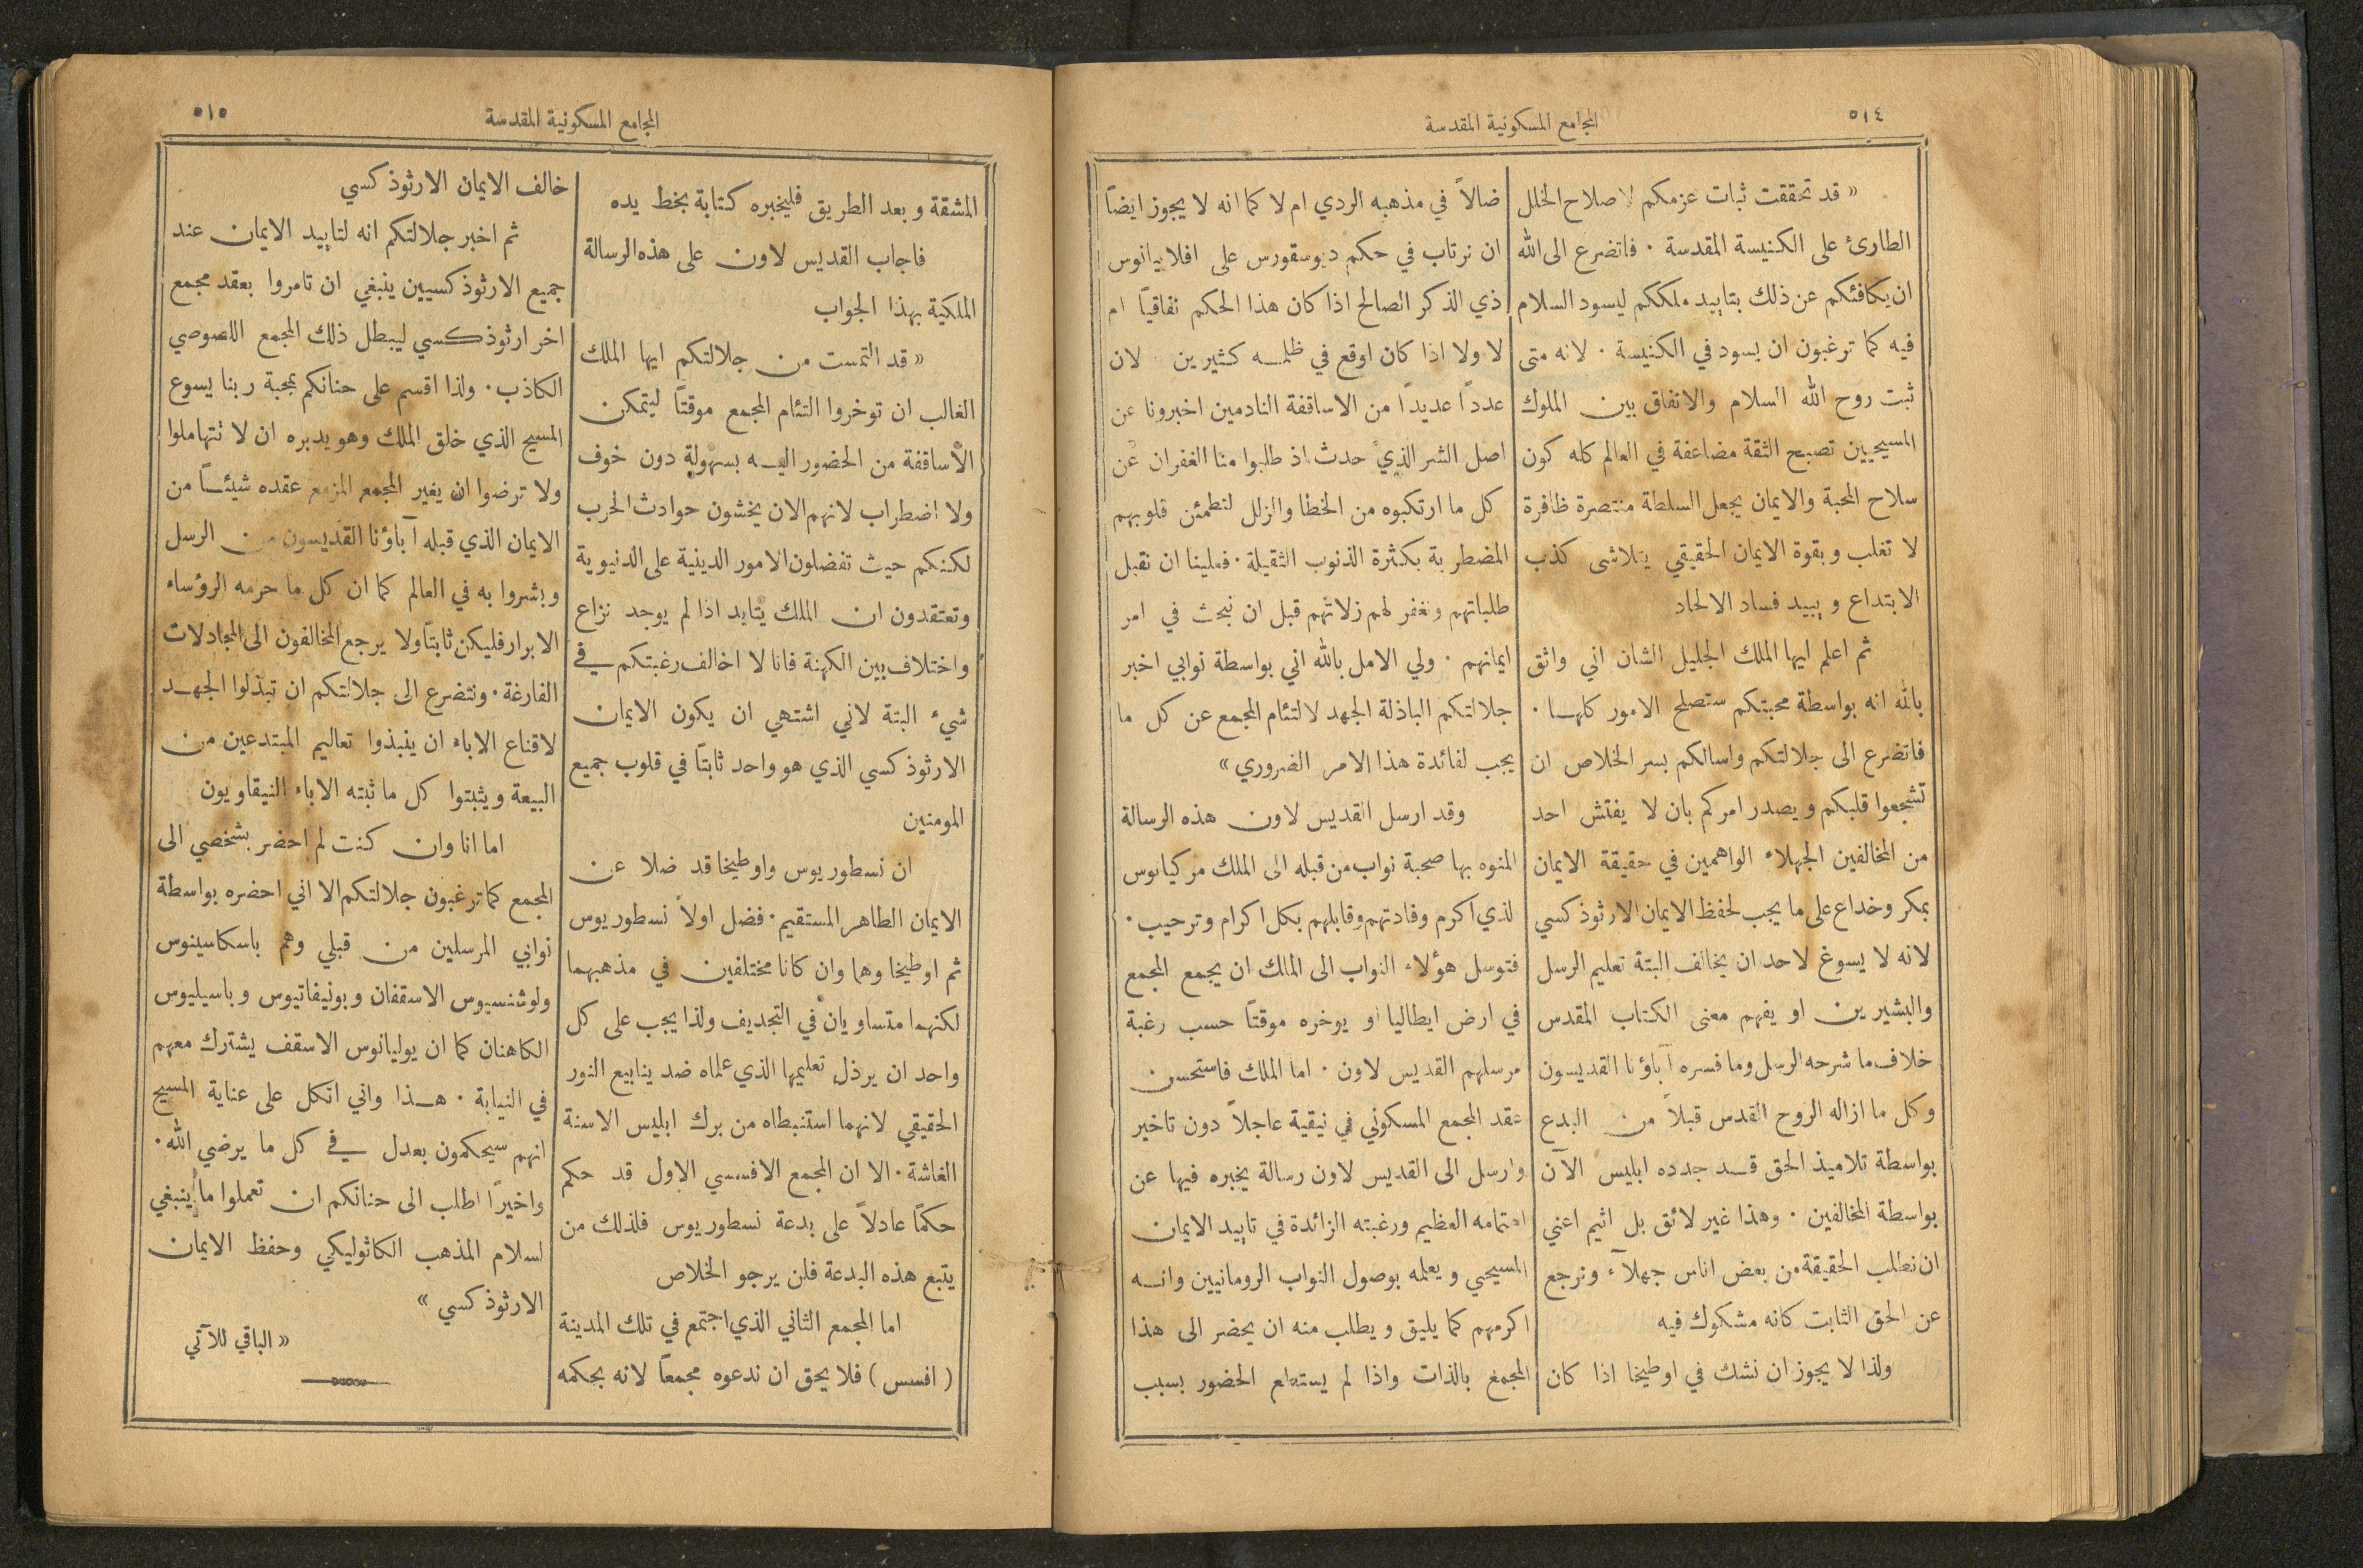 ٥١٤
المجامع المسكونية المقدسة
« قد تحققت ثبات عزمكم لاصلاح الخلل
الطارئ على الكنيسة المقدسة . فاتضرع الى الله
ان يكافئكم عن ذلك بتاييد ملككم ليسود السلام
فيه كما ترغبون ان يسود في الكنيسة . لانه متى
ثبت روح الله السلام والاتفاق بين الملوك
المسيحيين تصبح الثقة مضاعفة في العالم كله كون
سلاح المحبة والايمان يجعل السلطة منتصرة ظافرة
لا تغلب وبقوة الايمان الحقيقي يتلاشى كذب
الابتداع ويبيد فساد الالحاد
ثم اعلم ايها الملك الجليل الشان اني واثق
بالله انه بواسطة محبتكم ستصلح الامور كلها .
فاتضرع الى جلالتكم واسالكم بسر الخلاص ان
تشجعوا قلبكم ويصدر امركم بان لا يفتش احد
من المخالفين الجهلاء الواهمين في حقيقة الايمان
بمكر وخداع على ما يجب لحفظ الايمان الارثوذكسي
لانه لا يسوغ لاحد ان يخالف البتة تعليم الرسل
والبشيرين او يفهم معنى الكتاب المقدس
خلاف ما شرحه الرسل وما فسره آباؤنا القديسون
وكل ما ازاله الروح القدس قبلاً من البدع
بواسطة تلاميذ الحق قد جدده ابليس الآن
بواسطة المخالفين . وهذا غير لائق بل اثيم اعني
ان نطلب الحقيقة من بعض اناس جهلآء ونرجع
عن الحق الثابت كانه مشكوك فيه
ولذا لا يجوز ان نشك في اوطيخا اذا كان
ضالاً في مذهبه الردي ام لا كما انه لا يجوز ايضاً
ان نرتاب في حكم ديوسقورس على افلابيانوس
ذي الذكر الصالح اذا كان هذا الحكم نفاقيًا ام
لا ولا اذا كان اوقع في ظلمه كثيرين لان
عدداً عديداً من الاساقفة النادمين اخبرونا عن
اصل الشر الذي حدث اذ طلبوا منا الغفران عن
كل ما ارتكبوه من الخطا والزلل لتطمئن قلوبهم
المضطربة بكثرة الذنوب الثقيلة . فعلينا ان نقبل
طلباتهم ونغفر لهم زلاتهم قبل ان نبحث في امر
ايمانهم . ولي الامل بالله اني بواسطة نوابي اخبر
جلالتكم الباذلة الجهد لالتئام المجمع عن كل ما
يجب لفائدة هذا الامر الضروري »
وقد ارسل القديس لاون هذه الرسالة
المنوه بها صحبة نواب من قبله الى الملك مركيانوس
لذي اكرم وفادتهم وقابلهم بكل اكرام وترحيب .
فتوسل هؤلاء النواب الى الملك ان يجمع المجمع
في ارض ايطاليا او يوخره موقتاً حسب رغبة
مرسلهم القديس لاون . اما الملك فاستحسن
عقد المجمع المسكوني في نيقية عاجلاً دون تاخير
وارسل الى القديس لاون رسالة يخبره فيها عن
اهتمامه العظيم ورغبته الزائدة في تاييد الايمان
المسيحي ويعلمه بوصول النواب الرومانيين وانه
اكرمهم كما يليق ويطلب منه ان يحضر الى هذا
المجمع بالذات واذا لم يستطع الحضور بسبب
المجامع المسكونية المقدسة
٥١٥
المشقة وبعد الطريق فليخبره كتابة بخط يده
فاجاب القديس لاون على هذه الرسالة
الملكية بهذا الجواب
« قد التمست من جلالتكم ايها الملك
الغالب ان توخروا التئام المجمع موقتاً ليتمكن
الأساقفة من الحضور اليه بسهولة دون خوف
ولا اضطراب لانهم الان يخشون حوادث الحرب
لكنكم حيث تفضلون الامور الدينية على الدنيوية
وتعتقدون ان الملك يتايد اذا لم يوجد نزاع
واختلاف بين الكهنة فانا لا اخالف رغبتكم في
شيء البتة لاني اشتهي ان يكون الايمان
الارثوذكسي الذي هو واحد ثابتاً في قلوب جميع
المومنين
ان نسطوريوس واوطيخا قد ضلا عن
الايمان الطاهر المستقيم . فضل اولاً نسطوريوس
ثم اوطيخا وهما وان كانا مختلفين في مذهبهما
لكنهما متساويان في التجديف ولذا يجب على كل
واحد ان يرذل تعليمها الذي علماه ضد ينابيع النور
الحقيقي لانهما استنبطاه من برك ابليس الاسنة
الغاشة . الا ان المجمع الافسسي الاول قد حكم
حكماً عادلاً على بدعة نسطوريوس فلذلك من
يتبع هذه البدعة فلن يرجو الخلاص
اما المجمع الثاني الذي اجتمع في تلك المدينة
( افسس ) فلا يحق ان ندعوه مجمعاً لانه بحكمه
خالف الايمان الارثوذكسي
ثم اخبر جلالتكم انه لتاييد الايمان عند
جميع الارثوذكسيين ينبغي ان تامروا بعقد مجمع
اخر ارثوذكسي ليبطل ذلك المجمع اللصوصي
الكاذب . ولذا اقسم على حنانكم بمحبة ربنا يسوع
المسيح الذي خلق الملك وهو يدبره ان لا تتهاملوا
ولا ترضوا ان يغير المجمع المزمع عقده شيئاً من
الايمان الذي قبله آباؤنا القديسون من الرسل
وبشروا به في العالم كما ان كل ما حرمه الرؤساء
الابرار فليكن ثابتاً ولا يرجع المخالفون الى المجادلات
الفارغة . ونتضرع الى جلالتكم ان تبذلوا الجهد
لاقناع الاباء ان ينبذوا تعاليم المبتدعين من
البيعة ويثبتوا كل ما ثبته الاباء النيقاويون
اما انا وان كنت لم احضر بشخصي الى
المجمع كما ترغبون جلالتكم الا اني احضره بواسطة
نوابي المرسلين من قبلي وهم باسكاسينوس
ولوشنسيوس الاسقفان وبونيفاتيوس وباسيليوس
الكاهنان كما ان يوليانوس الاسقف يشترك معهم
في النيابة . هذا واني اتكل على عناية المسيح
انهم سيحكمون بعدل في كل ما يرضي الله .
واخيراً اطلب الى حنانكم ان تعملوا ما ينبغي
لسلام المذهب الكاثوليكي وحفظ الايمان
الارثوذكسي »
« الباقي للآتي